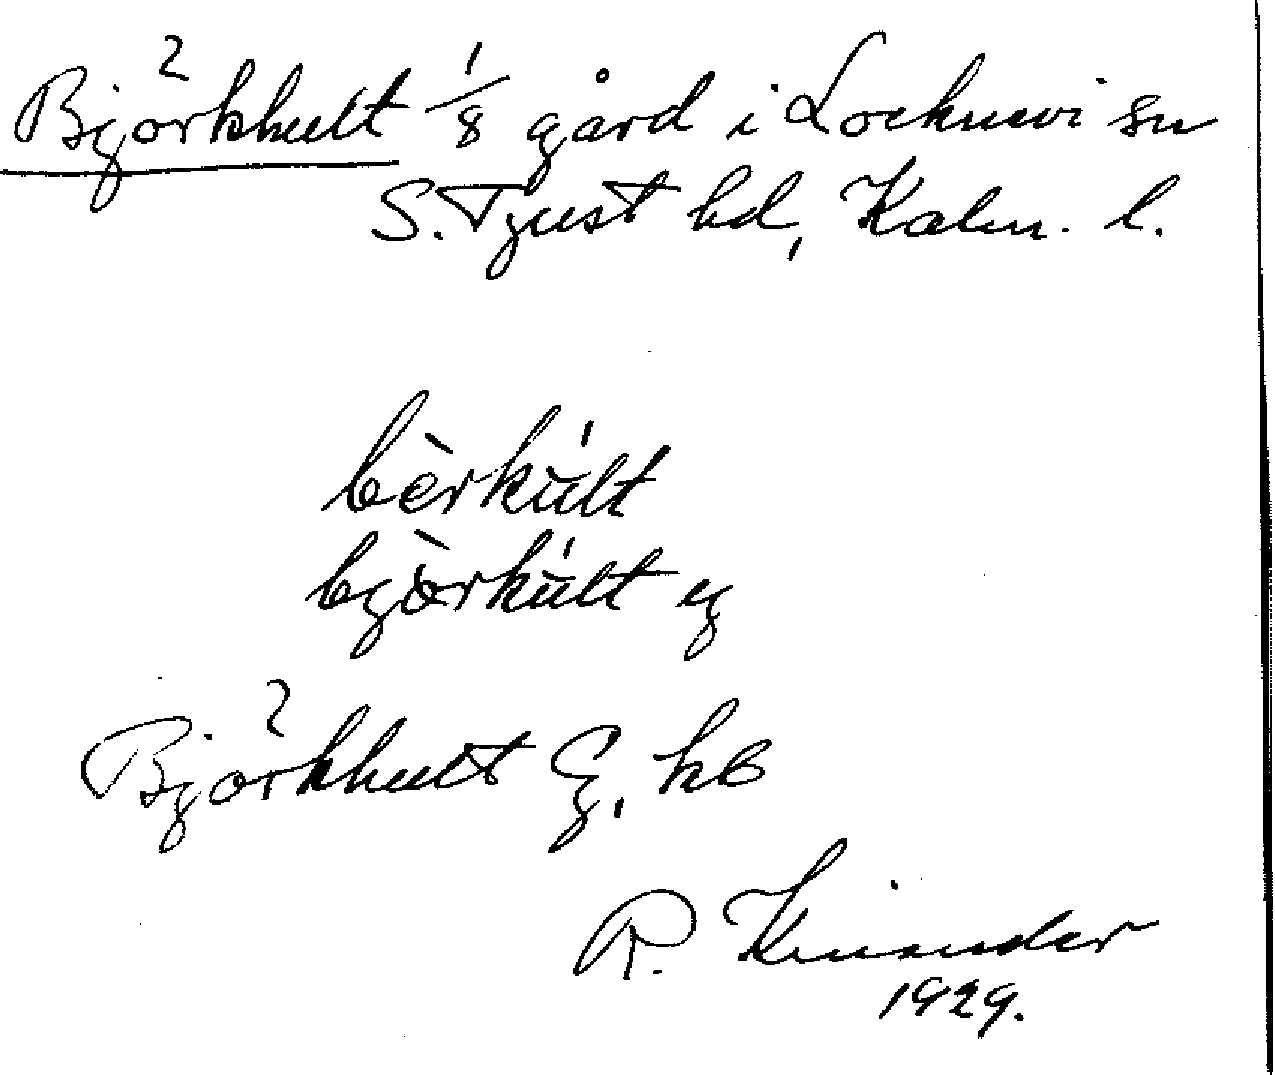 Björkhult 1/8 gård i Locknevi sn
S. Tjust hd, Kalm. l.
bèrkúlt
bjòrkúlt ej
Björkhult Ej, kb
R. Kinander
1929.